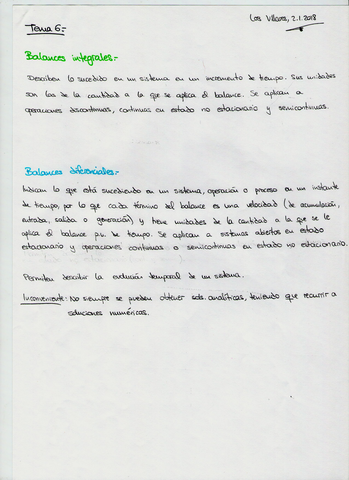 Los Villares, 2.1.2018
Tema 6:-
Balances integrales:-
Describen lo sucedido en un sistema en un incremento de tiempo. Sus unidades
son las de la cantidad a la que se aplica el balance. Se aplican a
operaciones discontinuas, continuas en estado no estacionario y semicontinuas.
Balances diferenciales:-
Indican lo que está sucediendo en un sistema, operación o proceso en un instante
de tiempo, por lo que cada término del balance es una velocidad (de acumulación,
entrada, salida o generación) y tiene unidades de la cantidad a la que se le
aplica el balance p.u. de tiempo. Se aplican a sistemas abiertos en estado
estacionario y operaciones continuas o semicontinuas en estado no estacionario.
Permiten describir la evolución temporal de un sistema.
Inconveniente: No siempre se pueden obtener sols. analíticas, teniendo que recurrir a
soluciones numéricas.